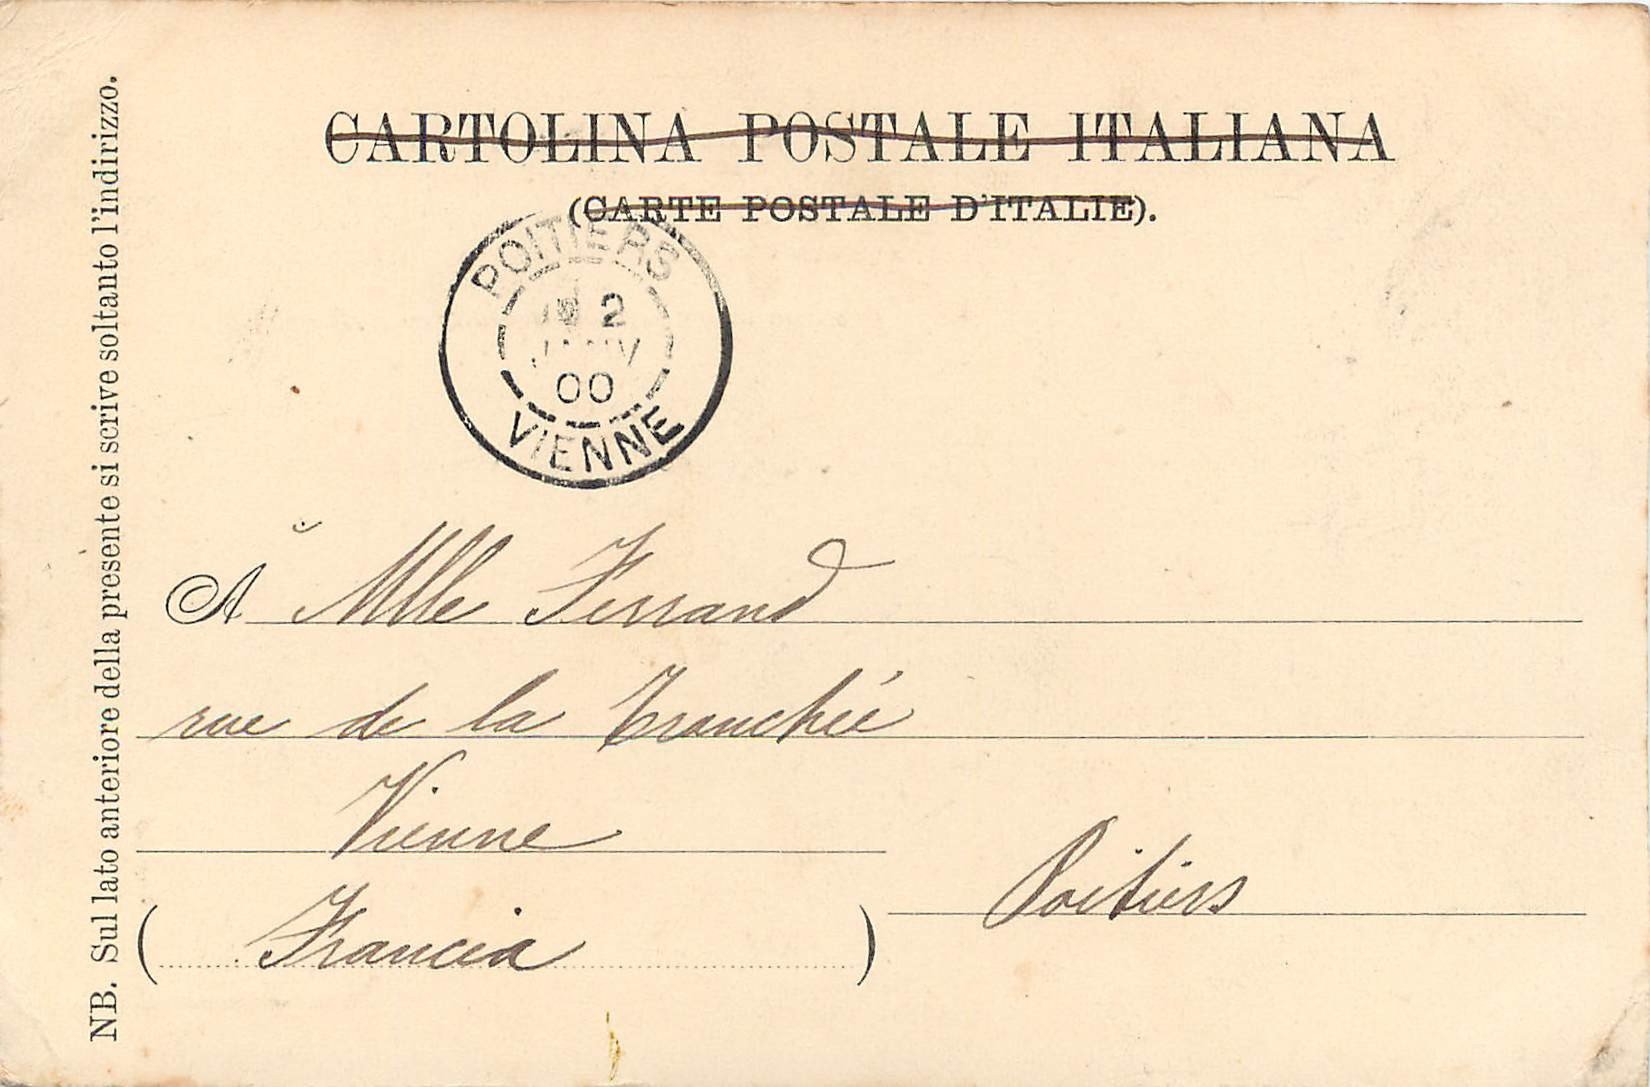 CARTOLINA POSTALE ITALIANA
(CARTE POSTALE D'ITALIE).
POITIERS
2
JANV
00
VIENNE
A Mlle Ferrand
rue de la Tranchée
Vienne
Poitiers
(Francia)
NB. Sul lato anteriore della presente si scrive soltanto l'indirizzo.